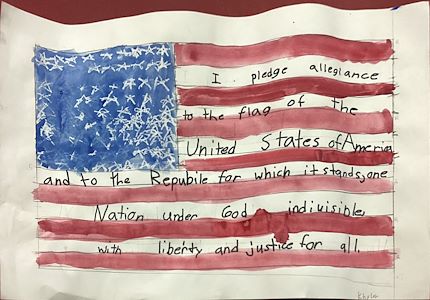 I pledge allegiance
to the flag of the
United States of America
and to the Repubile for which it stands, one
Nation under God indivisible,
with liberty and justice for all.